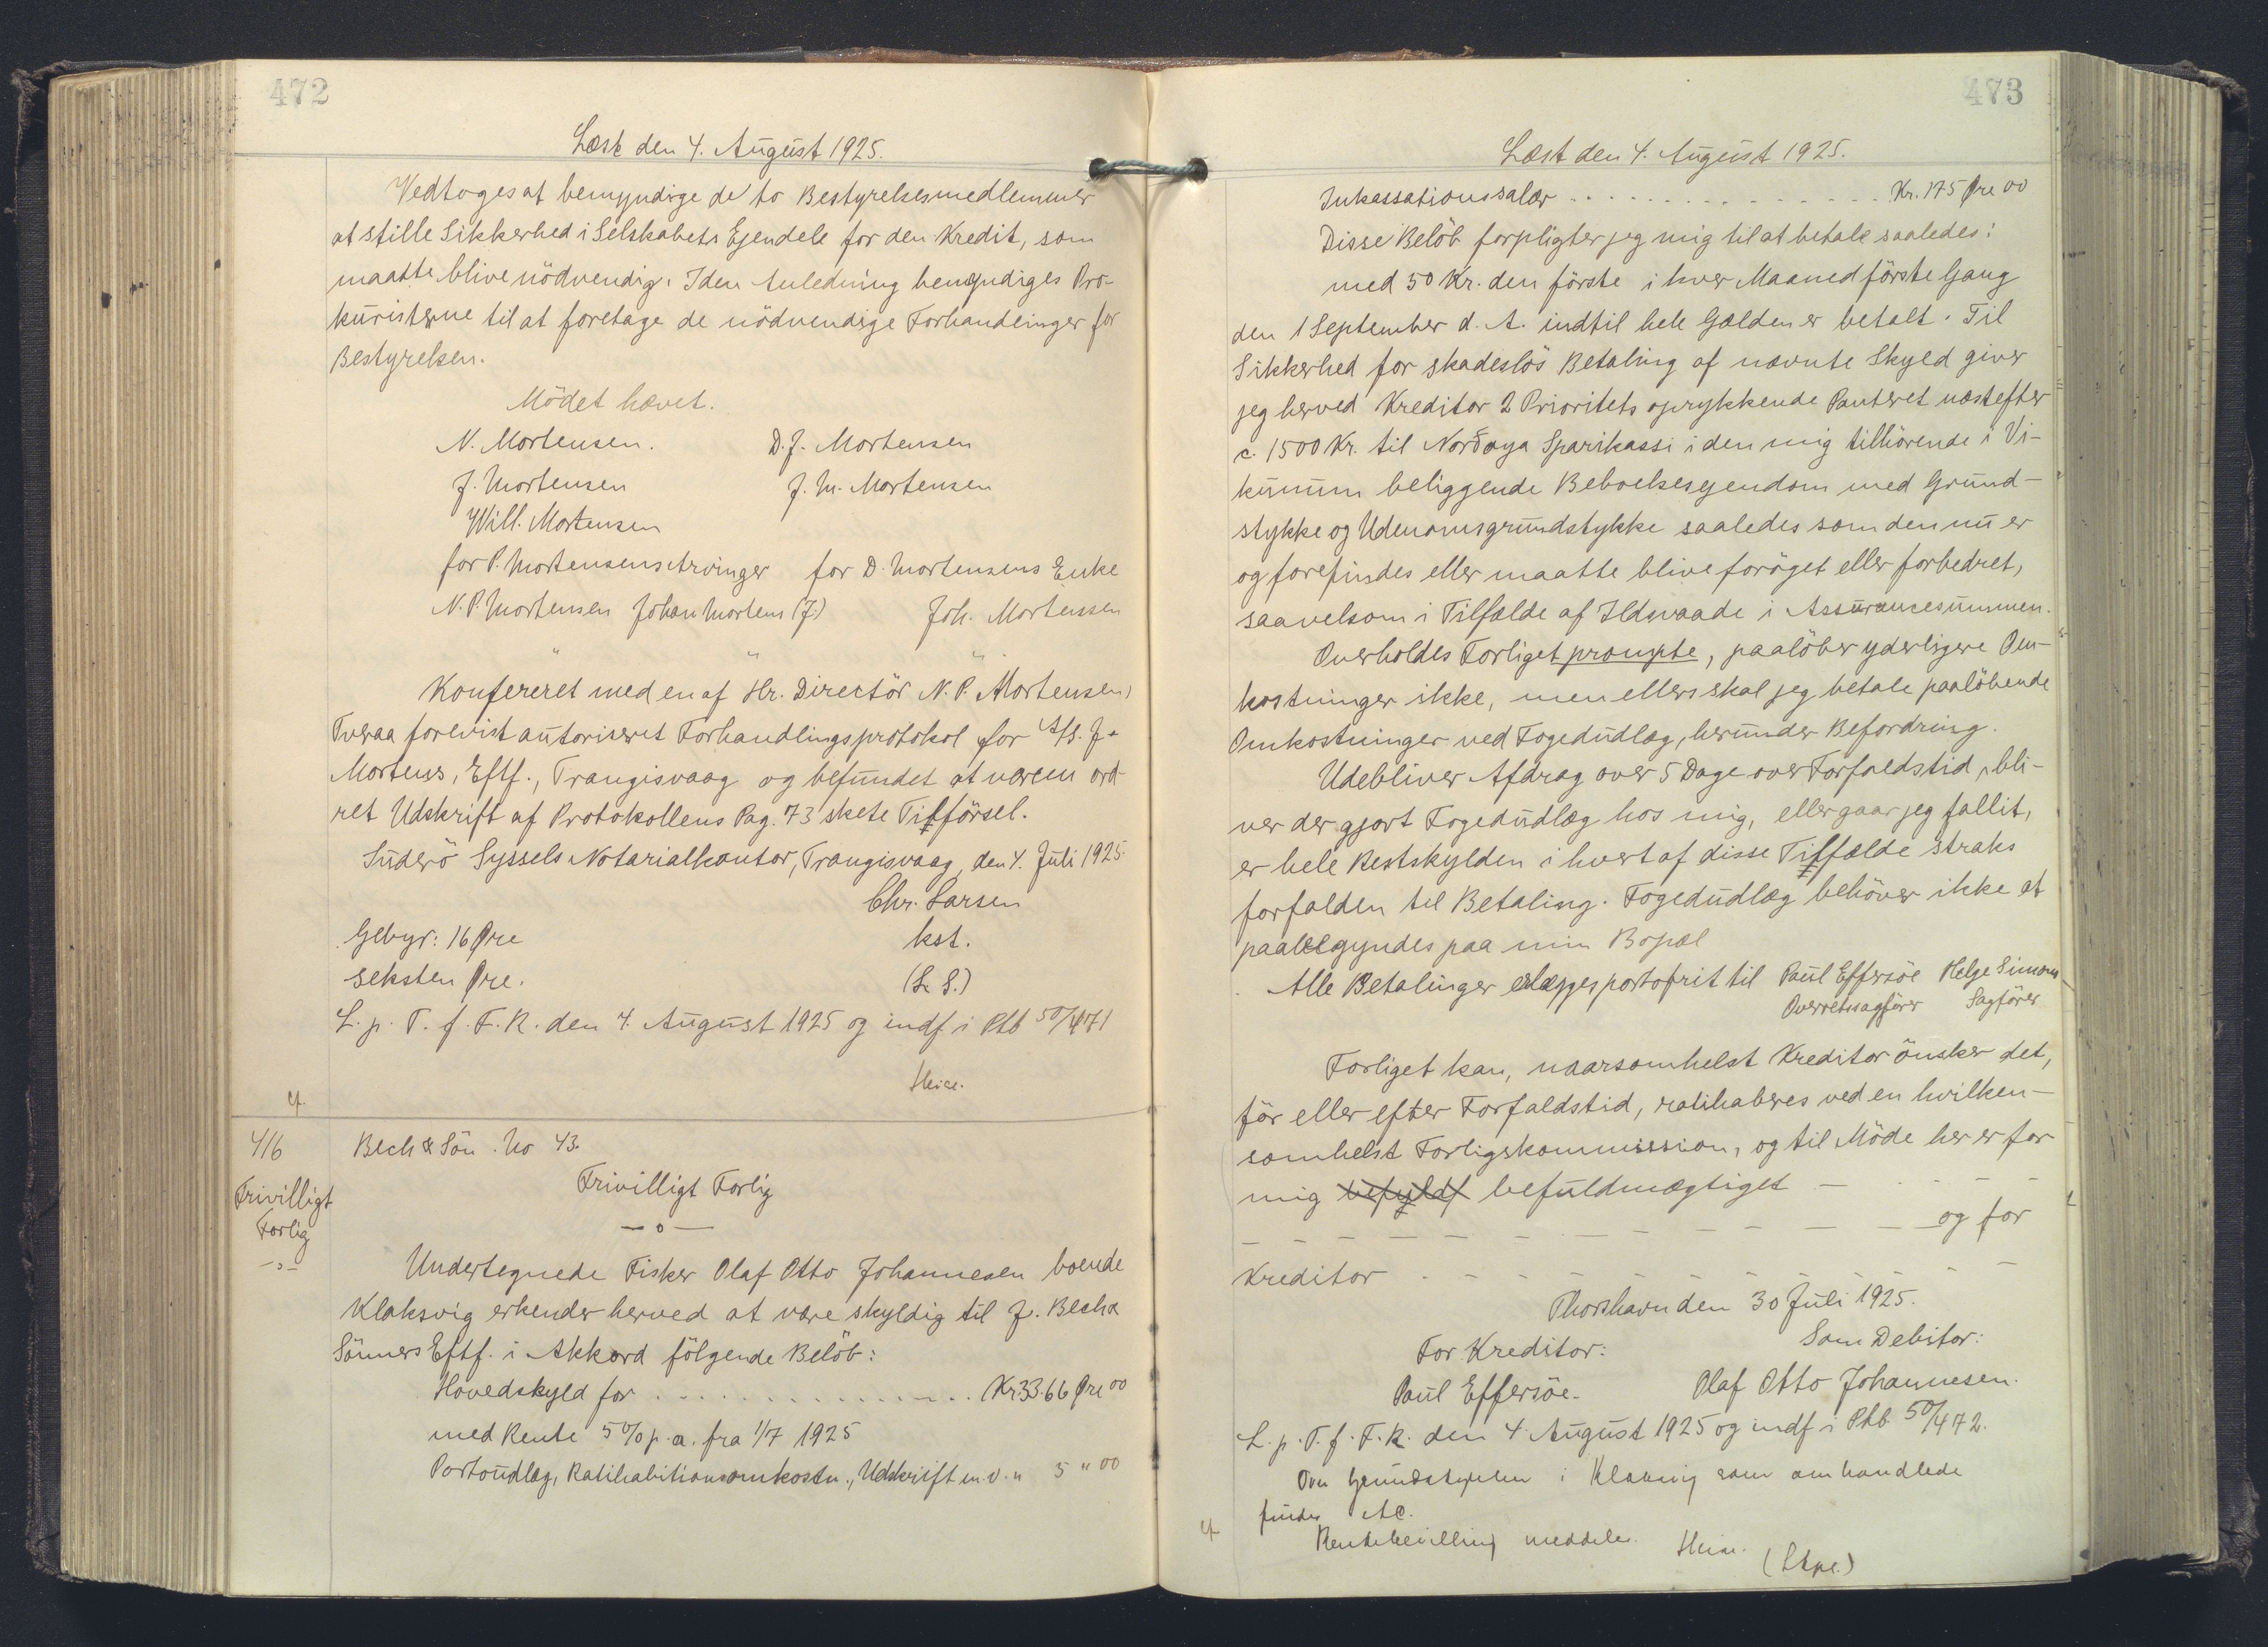 472
Læst den 4. August 1925.
Vedtoges at bemyndige de to Bestyrelsesmedlemmer
at stille Sikkerhed i Selskabets Ejendele for den Kredit, som
maatte blive nödvendig. I den Anledning bemyndiges Pro-
kuristerne til at foretage de nödvendige Forhandlinger for
Bestyrelsen.
Mödet hævet.
N. Mortensen. D.J. Mortensen
J. Mortensen J. M. Mortensen
Will. Mortensen
for P. Mortensens Arvinger for D. Mortensens Enke
N.P. Mortensen Johan Mortens (J.) Joh. Mortensen
" " "
Konfereret med en af Hr. Directör N. P. Mortensen,
Tveraa forevist autoriseret Forhandlingsprotokol for A/S. J.
Mortens, Eftf., Trangisvaag og befundet at være en ord-
ret Udskrift af Protokollens Pag. 73 skete Tilförsel.
Suderö Syssels Notarialkontor, Trangisvaag, den 4. Juli 1925.
Chr. Larsen
Gebyr: 16 Øre kst.
seksten Øre. (L. S.)
L. p. T. f. F. R. den 4. August 1925 og indf. i Ptb 50/471
Heise.
cf.
4/6 Bech & Sön. No 43.
Frivilligt Forlig
Frivilligt
Forlig
—o—
—o—
Undertegnede Fisker Olaf Otto Johannesen boende
Klaksvig erkender herved at være skyldig til J. Bech &
Sönners Eftf. i Akkord fölgende Belöb:
Hovedskyld for . . . . . . . . . . . . . . . Kr 3366 Øre 00
med Rente 5 % p. a. fra 1/7 1925
Portoudlæg, Ratihabitionsomkostn., Udskrift m.v. " 5 " 00
473
Læst den 4. August 1925.
Inkassationssalær . . . . . . . . . . . . . . . Kr. 175 Øre 00
Disse Belöb forpligter jeg mig til at betale saaledes:
med 50 Kr. den förste i hver Maaned förste Gang
den 1 September d. A. indtil hele Gælden er betalt. Til
Sikkerhed for skadeslös Betaling af nævnte Skyld giver
jeg herved Kreditor 2 Prioritets oprykkende Panteret næstefter
c. 1500 Kr. til Norðoya Sparikassi i den mig tilhörende i Vi-
kunum beliggende Beboelsesejendom med Grund-
stykke og Udenomsgrundstykke saaledes som den nu er
og forefindes eller maatte blive foröget eller forbedret,
saavelsom i Tilfælde af Ildsvaade i Assurancesummen.
Overholdes Forliget prompte, paalöber yderligere Om-
kostninger ikke, men ellers skal jeg betale paalöbende
Omkostninger ved Fogedudlæg, herunder Befordring.
Udebliver Afdrag over 5 Dage over Forfaldstid, bli-
ver der gjort Fogedudlæg hos mig, eller gaar jeg fallit,
er hele Restskylden i hvert af disse Tilfælde straks
forfalden til Betaling. Fogedudlæg behöver ikke at
paabegyndes paa min Bopæl
Alle Betalinger erlægges portofrit til Paul Effersöe Helge Simons
Overretssagförer Sagförer
Forliget kan, naarsomhelst Kreditor önsker det,
för eller efter Forfaldstid, ratihaberes ved en hvilken-
somhelst Forligskommission, og til Möde her er for
mig befuldmægtiget —
— — — — — — — — — og for
Kreditor . - - - - - - - -
Thorshavn den 30 Juli 1925.
For Kreditor: Som Debitor:
Paul Effersöe. Olaf Otto Johannesen.
L. p. T. f. F. R. den 4 August 1925 og indf i Ptb 50/472.
Om Grundstykken i Klaksvig som omhandlede
findes AC.
cf. Rentebevilling meddeles. Heise.